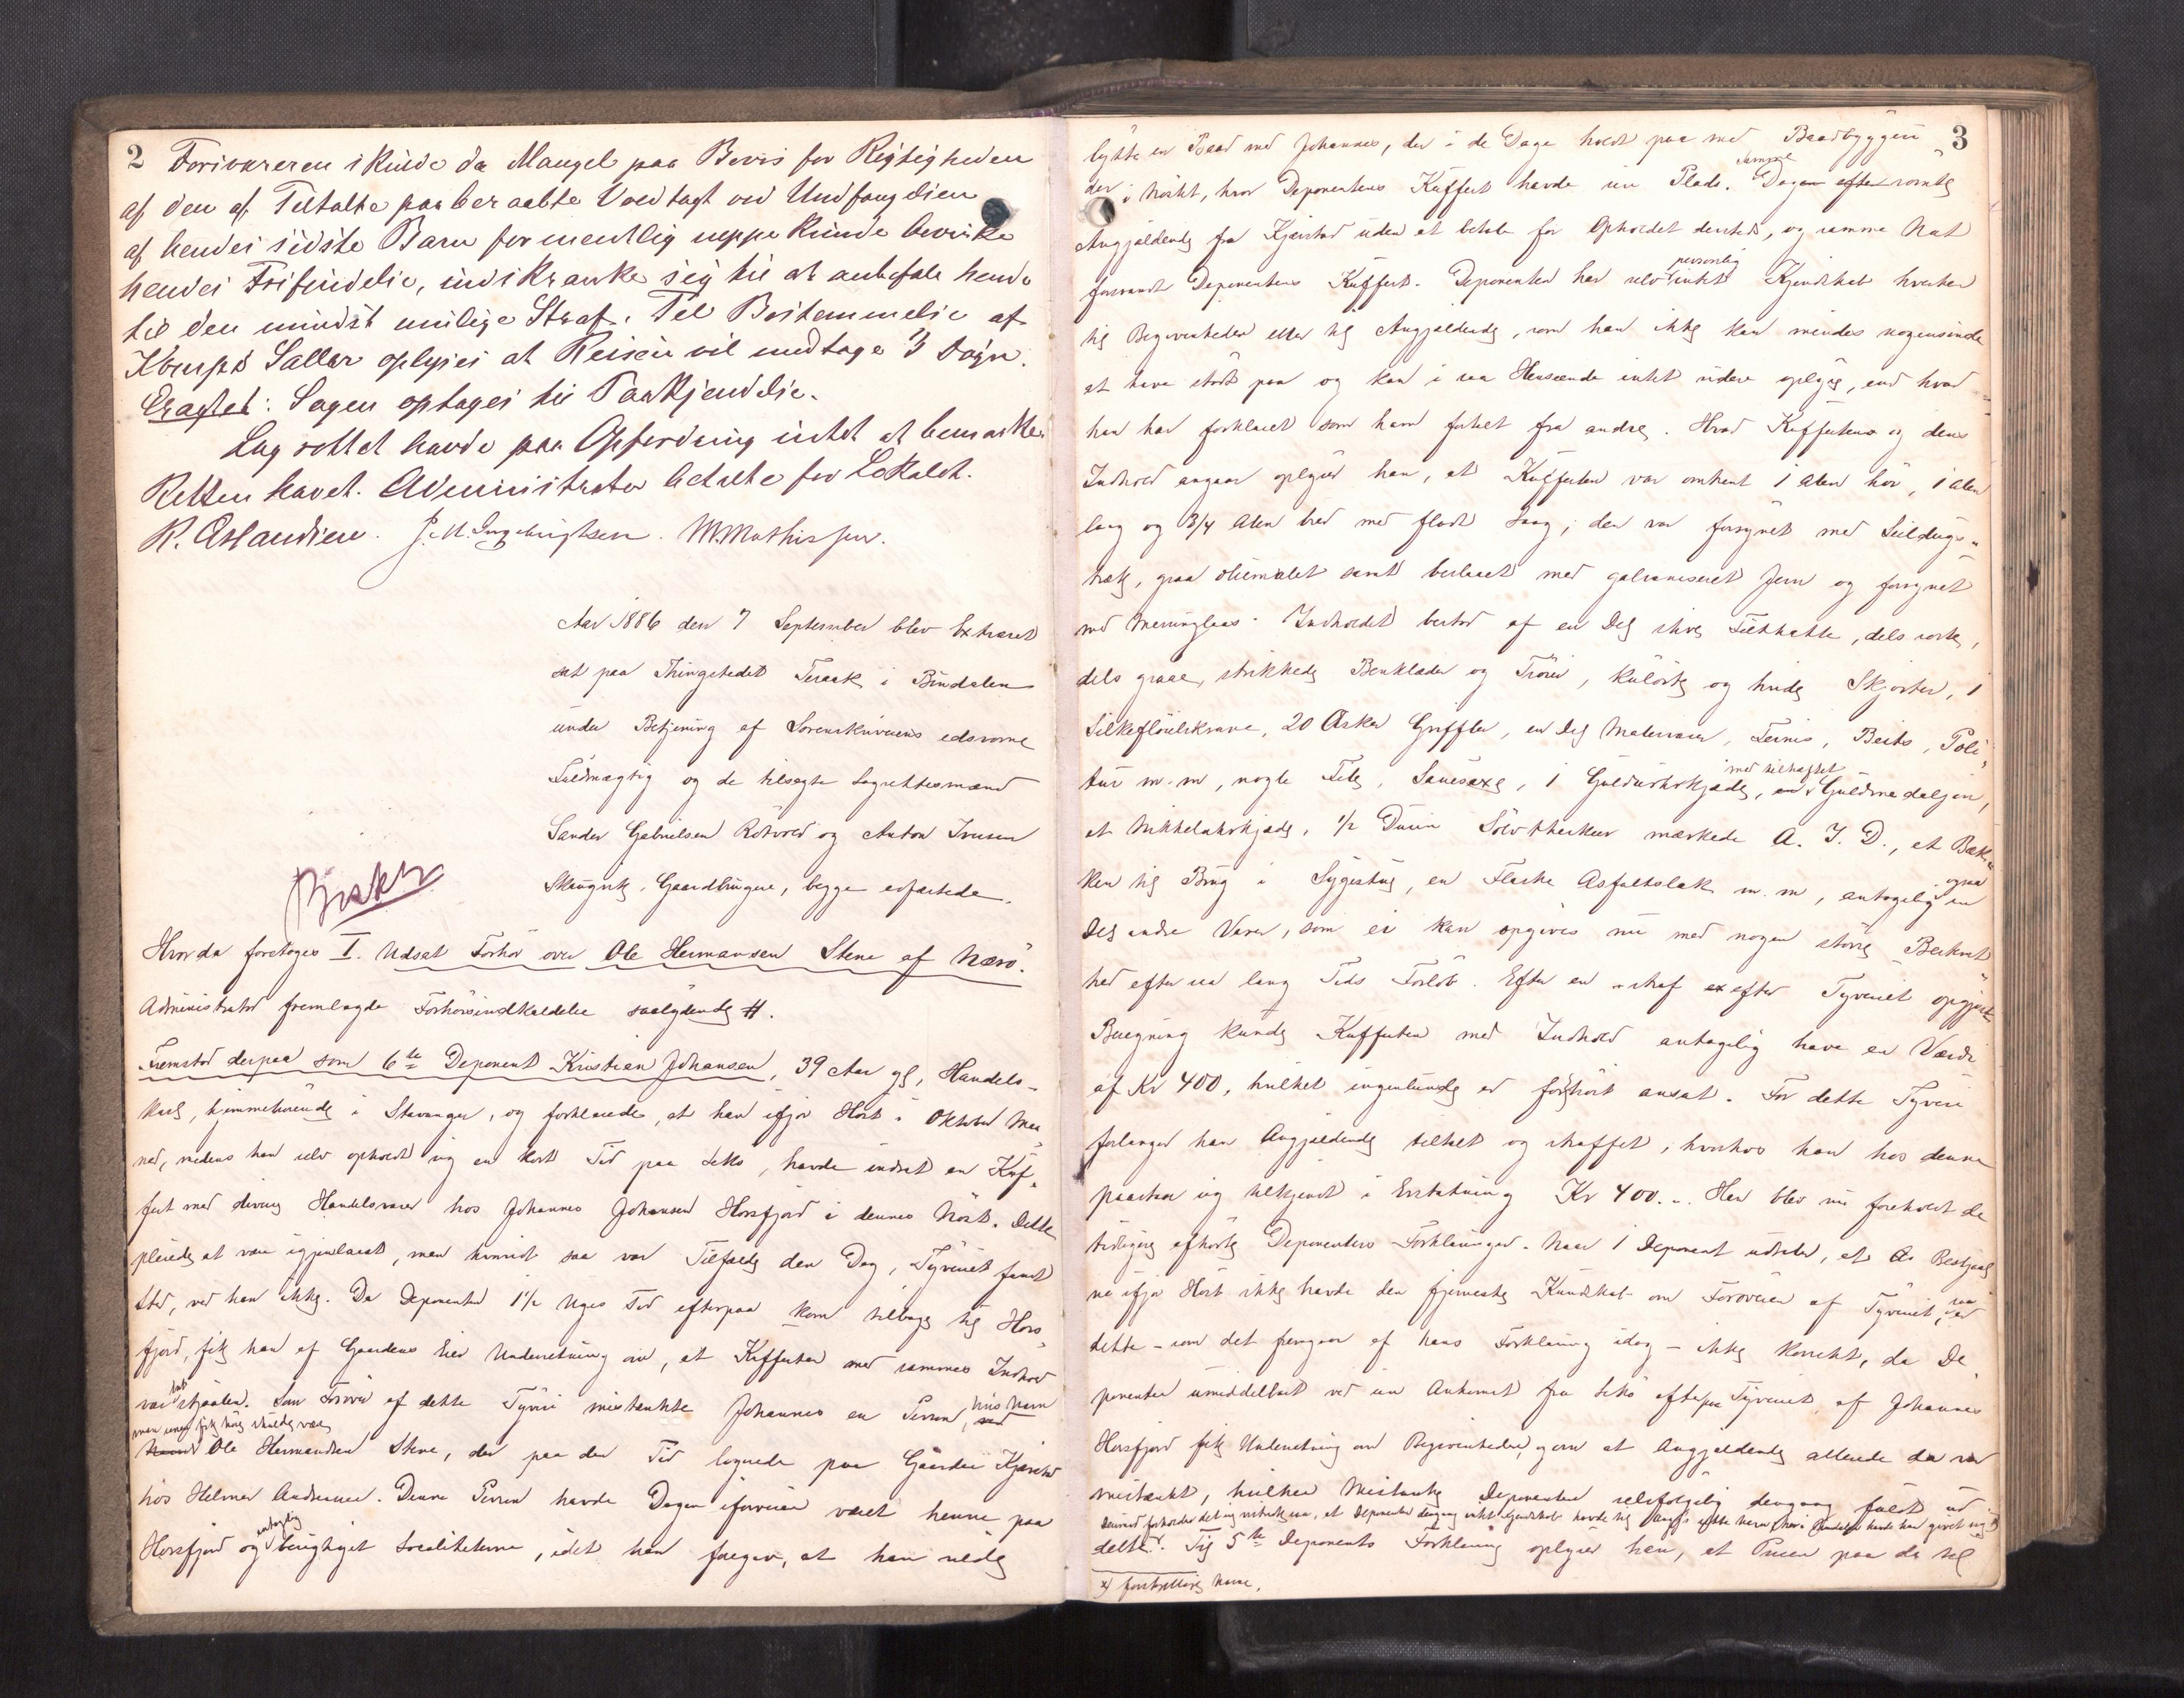 2
Forsvareren iKunde da Mangel paa Bevis for Rigtigheden
af den af Tiltalte paaberaabte Voldtagt ved Undfangelsen
af hendes sidste Barn formentlig neppe kunde bevirke
hendes Frifindelse, indskrænke sig til at anbefale hende
til den mindst mulige Straf. Til Bestemmelse af
Sallær oplyses at Reisen vil medtage 3 Døgn.
Eragtet: Sagen optages til Paakjendelse.
Lagrettet havde paa Opfordring intet at bemærke.
Retten hævet. Administrator betalte for Lokalet.
J. M. Ingebrigtsen. M. Mathissen.
Aar 1886 den 7 September blev Extraret
sat paa Thingstedet Teraak i Bindalen
under Betjening af Sorenskriverens edsvorne
Fuldmægtig og de tilsagte Lagrettesmænd
Sander Gabrielsen og Anton Iversen
Gaardbrugere, begge edfæstede.
Hvorda foretoges I. Udsat Forhør over Ole Hermansen Stene af Nærø.
Administrator fremlagde Forhørsindkaldelse saalydende #.
Fremstod derpaa som 6te Deponent Kristian Johansen, 39 Aar gl, Handels-
karl, hjemmehørende i Stavanger, og forklarede, at han ifjor Høst i Oktober Maa-
ned, medens han selv opholdt sig en kort Tid paa Leko, havde indsat en Kuf-
fert med diverse Handelsvarer hos Johannes Johansen Horsfjord i dennes Nøst. Dette
pleiede at være igjenlaast, men hvorvidt saa var Tilfælde den Dag, Tyveriet fandt
Sted, ved han ikke. Da Deponenten 1½ Uges Tid efterpaa kom tilbage til Hors-
fjord, fik han af Gaardens Eier Underretning om, at Kufferten med sammes Indhold
var stjaalen. Som Forøver af dette Tyveri mistænkte Johannes en Person, hvis Navn
Ole Hermansen Stene, der paa den Tid paa Gaarden Kjærstad
hos Helmer Andreassen. Denne Person havde Dagen iforveien været henne paa
Horsfjord og antagelig besigtiget Localiteterne, idet han foregav, at han vilde
3
bytte en Baad med Johannes, der i de Dage holdt paa med Baadbyggeri
der i Nøstet, hvor Deponentens Kuffert havde sin Plads. samme Dagen efter rømte
Angjældende fra Kjærstad uden at betale for Opholdet dersteds, og samme Nat
forsvandt Deponentens Kuffert. Deponenten har selv intet personlig Kjendskab hverken
til Begivenheden eller til Angjældende, som han ikke kan mindes nogensinde
at have stødt paa og kan i saa Henseende intet videre oplyse, end hvad
han har forklaret som ham fortalt fra andre. Hvad Kufferten og dens
Indhold angaar oplyser han, at Kufferten var omtrent 1 Alen høi, 1 Alen
lang og 3/4 Alen bred med fladt Laag; den var forsynet med Seildugs-
træk, graa oliemalet samt beslaaet med galvaniseret Jern og forsynet
med Messinglaas. Indholdet bestod af en Del stive Filthatte, dels sorte,
dels graae, strikkede Benklæder og Trøier, kulørte og hvide Skjorter, 1
Silkefløielskrave, 20 Æsker Griffler, en Del Malervarer, Fernis, Beits, Poli-
tur m.m, nogle File, Sauesaxe, 1 Guldurkjæde, med tilhæftet Guldmedaljon,
et Nikkelurkjæde, ½ Dusin Sølvtheskeer mærkede A. J. D., et Bæk-
ken til Brug i Sygestue, en Flaske Asfaltslak m.m, antagelig ogsaa en
Del andre Varer, som ei kan opgives nu med nogen større Bestemt-
hed efter saa lang Tids Forløb. Efter en straf ex efter Tyveriet opgjort
Beregning kunde Kufferten med Indhold antagelig have en Værdi
af Kr 400, hvilket ingenlunde er for høit ansat. For dette Tyveri
forlanger han Angjældende tiltalt og straffet, hvorhos han hos denne
paastaar sig tilkjendt i Erstatning Kr 400.- Han blev nu foreholdt de
tidligere afhørte Deponenters Forklaringer. Naar 1 Deponent udtaler, at
ne ifjor Høst ikke havde den fjerneste Kundskab om Forøveren af Tyveriet, saa er
dette - som det fremgaar af hans Forklaring idag - ikke korrekt, da De-
ponenten umiddelbart ved sin Ankomst fra Leko efterpaa Tyveriet af Johannes
Horsfjord fik Underretning om Begivenheden, og om at Angjældende allerede da var
mistænkt, hvilken Mistanke Deponenten selvfølgelig dengang
dette. Til 5te Deponents Forklaring oplyser han, at Prisen paa de
x) forskjellige Navne.